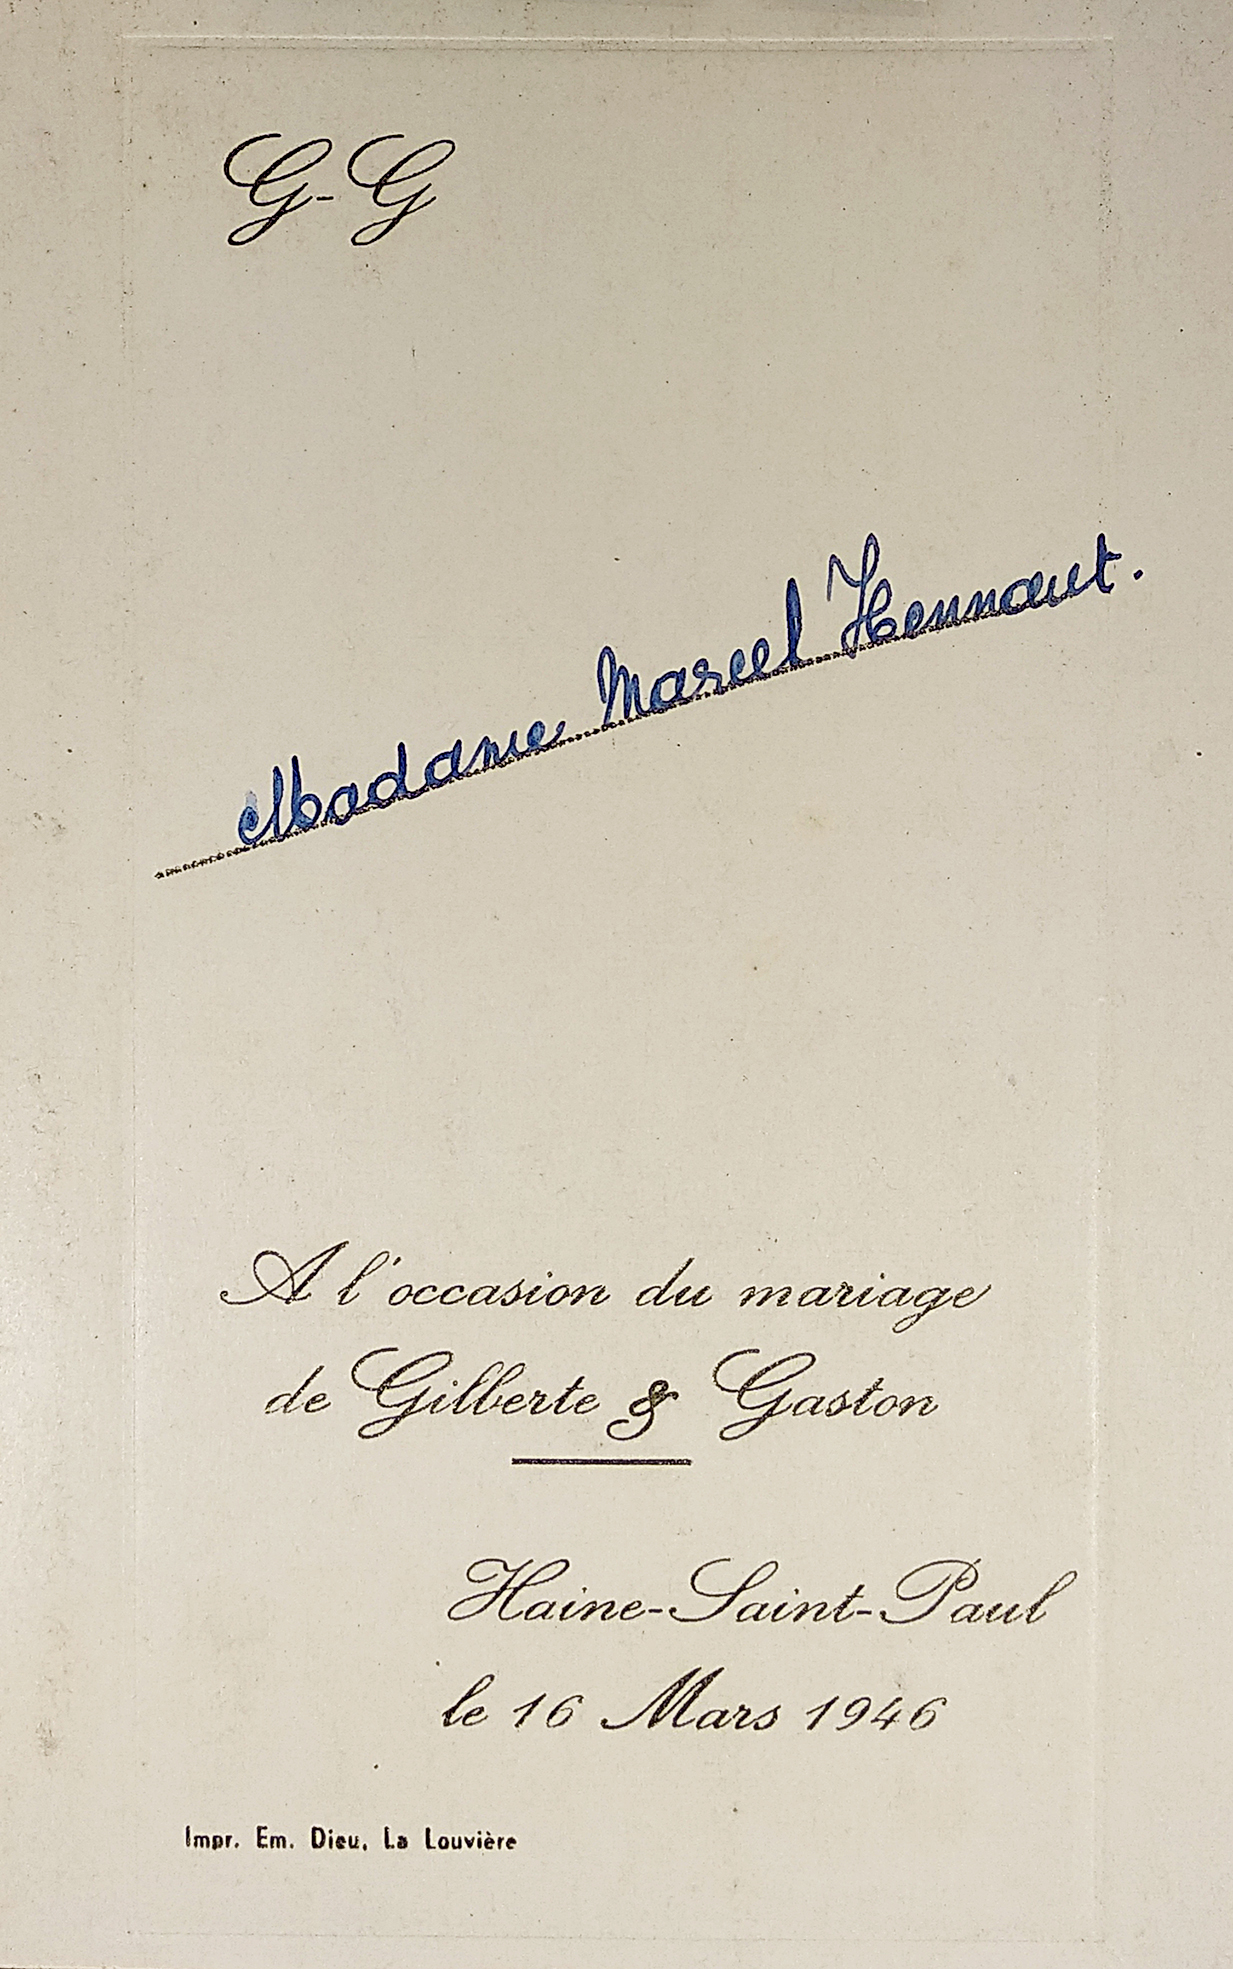 G-G
Madame Marcel Hennaut.
A l'occasion du mariage
de Gilberte & Gaston
Haine-Saint-Paul
le 16 Mars 1946
Impr. Em. Dieu, La Louvière